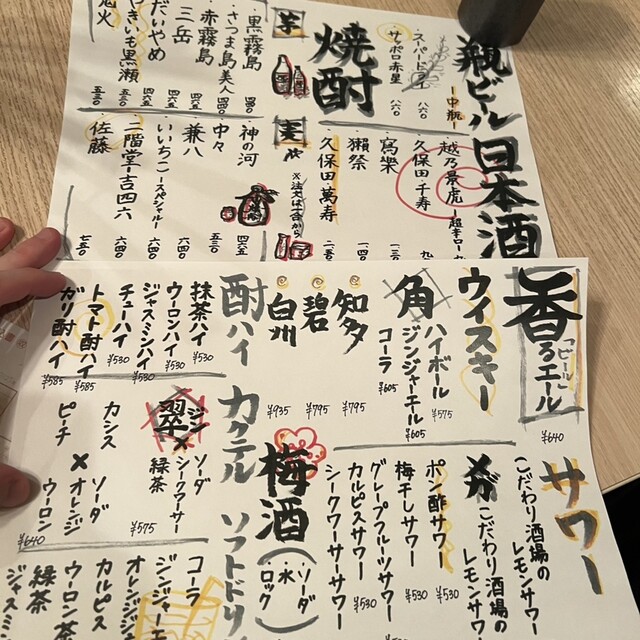 瓶ビール
ー中瓶ー
スーパードライ 八六〇
サッポロ赤星 八六〇
日本酒
越乃景虎 ー超辛口ー
久保田・千寿
寫樂
獺祭
久保田・萬寿
※注文は一合から
焼酎
芋
・黒霧島 四四〇
・さつま島美人 四四〇
・赤霧島
・三岳
だいやめ 四六五
やきいも黒瀬
鬼火 五三〇
麦
・神の河 四六五
・中々
・兼八
・いいちこ ースペシャルー 六四〇
・二階堂 吉四六 六四〇
・佐藤 七五〇
香るエール
っビール
¥640
ウィスキー
角
ハイボール ¥575
ジンジャーエール ¥605
コーラ ¥605
知多 ¥795
碧 ¥795
白州 ¥935
酎ハイ
抹茶ハイ ¥530
ウーロンハイ ¥530
ジャスミンハイ ¥530
チューハイ ¥530
トマト酎ハイ ¥585
ガリ酎ハイ ¥585
サワー
こだわり酒場の
レモンサワー
メガ
こだわり酒場の
レモンサワ
ポン酢サワー ¥530
梅干しサワー ¥530
グレープフルーツサワー
カルピスサワー ¥530
シークワーサーサワー
梅酒
(ソーダ
・水
・ロック)
カクテル
ジン
翠×
ソーダ
シークワーサー
緑茶
¥575
カシス
ピーチ
×
ソーダ
オレンジ
ウーロン
¥640
ソフトドリ
コーラ
ジンジャーエ
オレンジジ
カルピス
ウーロン茶
緑茶
ジャスミ